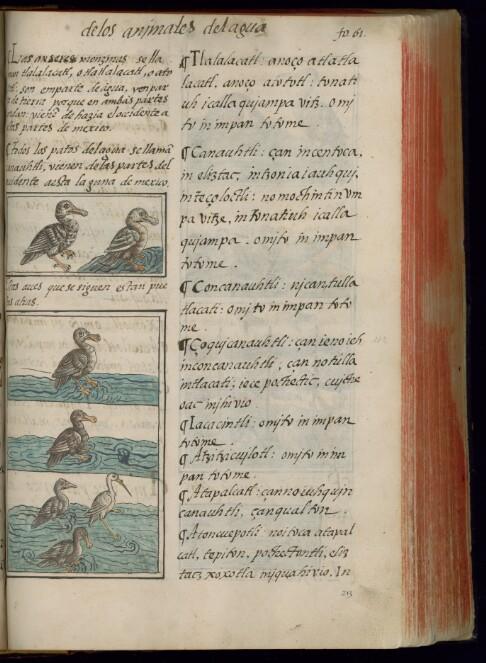 delos animales del agua
fo. 61.
Las anseres monzinas se lla
man tlalalacatl, o tlatlalacatl, o ato
totl: son en parte de agua, y en par
te de tierra porque en ambas partes
andan: viene de hazia el occidente a
estas partes de mexico.
¶ Todos los patos del agua se llamã
canauhtli, vienen de las partes del
occidente aesta laguna de mexico.
Las aues que se siguen estan pue
stas atras.
¶ Tlalalacatl: anoço atlatla
lacatl, anoço atototl: tonati
uh icalla quiampa vitz. omj
to in impan totome.
¶ Canauhtli: çan incentoca,
in eliztac, in tzonia iauh qui,
in teçolocti: no mochintin vm
pa vitze, in tonatiuh icalla
quiampa. omjto in impan
totome.
¶ Concanauhtli: njcan tulla
tlacati: omj to in impan toto
me.
¶ Çoquicanauhtli: can ie no ieh
in concanauhtli, çan no tulla
in tlacati, iece pochectic, cujche
oac injhivio
¶ Iacacintli: omjto in impan
totome.
¶ Atzitzicujlotl: omjto in im
pan totome.
¶ Atapalcatl: çan no iuhqujn
canauhtli, çan qualton.
¶ Atoncuepotli: no itoca atapal
catl, tepiton, pochectontli, eliz
tac, xoxotla injquahivio. In
213